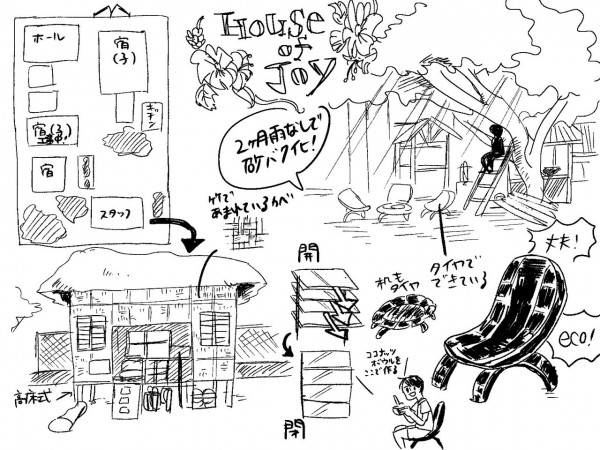 House
of
Joy
ホール
宿
(子)
キッ
チン
宿(子)
宿
スタッフ
2ヶ月雨なしで
砂バクイヒ!
竹で
あまれているカベ
開
閉
机も
タイヤ
タイヤで
できている
丈夫!
eco!
ココナッツ
ボウルを
ここで作る
高床式